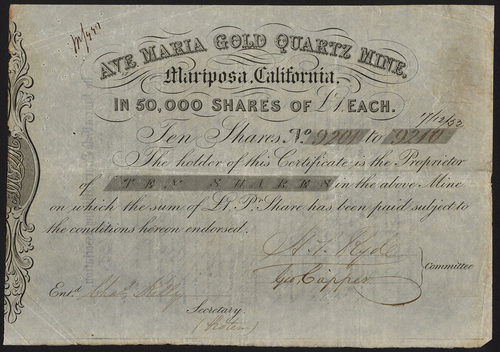 AVE MARIA GOLD QUARTZ MINE,
Mariposa, California,
IN 50,000 SHARES OF £1 EACH.
17/12/52
Ten Shares, No. 9201 to 9210
The holder of this Certificate is the Proprietor
of TEN SHARES in the above Mine
on which the sum of £1. Pr. Share has been paid subject to
the conditions hereon endorsed.
Geo Capper
Committee
Entd.
Secretary.